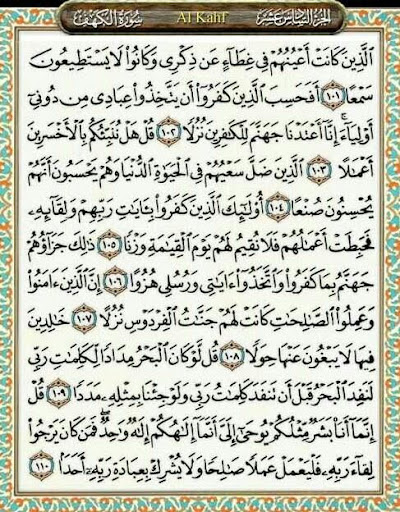 الجزء السادس عشر Al Kahf سورة الكهف
الَّذِينَ كَانَتْ أَعْيُنُهُمْ فِي غِطَاءٍ عَن ذِكْرِي وَكَانُوا لَا يَسْتَطِيعُونَ
سَمْعًا ١٠١ أَفَحَسِبَ الَّذِينَ كَفَرُوا أَن يَتَّخِذُوا عِبَادِي مِن دُونِي
أَوْلِيَاءَ ۚ إِنَّا أَعْتَدْنَا جَهَنَّمَ لِلْكَافِرِينَ نُزُلًا ١٠٢ قُلْ هَلْ نُنَبِّئُكُم بِالْأَخْسَرِينَ
أَعْمَالًا ١٠٣ الَّذِينَ ضَلَّ سَعْيُهُمْ فِي الْحَيَوٰةِ الدُّنْيَا وَهُمْ يَحْسَبُونَ أَنَّهُمْ
يُحْسِنُونَ صُنْعًا ١٠٤ أُولَٰئِكَ الَّذِينَ كَفَرُوا بِآيَاتِ رَبِّهِمْ وَلِقَائِهِ
فَحَبِطَتْ أَعْمَالُهُمْ فَلَا نُقِيمُ لَهُمْ يَوْمَ الْقِيَامَةِ وَزْنًا ١٠٥ ذَٰلِكَ جَزَاؤُهُمْ
جَهَنَّمُ بِمَا كَفَرُوا وَاتَّخَذُوا آيَاتِي وَرُسُلِي هُزُوًا ١٠٦ إِنَّ الَّذِينَ آمَنُوا
وَعَمِلُوا الصَّالِحَاتِ كَانَتْ لَهُمْ جَنَّاتُ الْفِرْدَوْسِ نُزُلًا ١٠٧ خَالِدِينَ
فِيهَا لَا يَبْغُونَ عَنْهَا حِوَلًا ١٠٨ قُل لَّوْ كَانَ الْبَحْرُ مِدَادًا لِّكَلِمَاتِ رَبِّي
لَنَفِدَ الْبَحْرُ قَبْلَ أَن تَنفَدَ كَلِمَاتُ رَبِّي وَلَوْ جِئْنَا بِمِثْلِهِ مَدَدًا ١٠٩ قُلْ
إِنَّمَا أَنَا بَشَرٌ مِّثْلُكُمْ يُوحَىٰ إِلَيَّ أَنَّمَا إِلَٰهُكُمْ إِلَٰهٌ وَاحِدٌ ۖ فَمَن كَانَ يَرْجُوا
لِقَاءَ رَبِّهِ فَلْيَعْمَلْ عَمَلًا صَالِحًا وَلَا يُشْرِكْ بِعِبَادَةِ رَبِّهِ أَحَدًا ١١٠